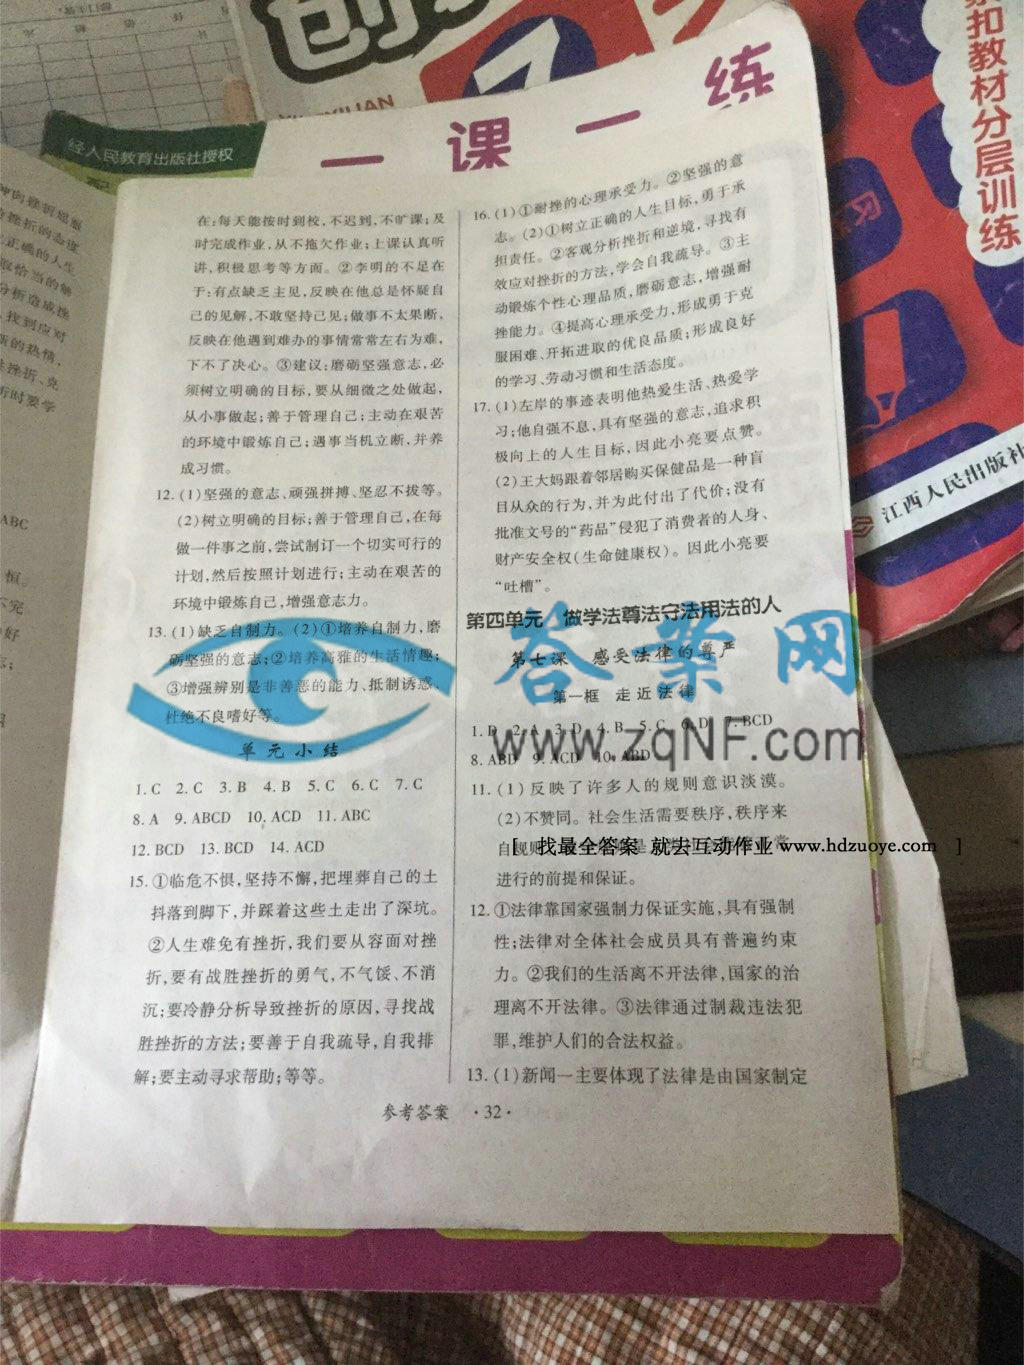 经人民教育出版社授权
一课一练
紧扣教材分层训练
江西人民出版社
在:每天能按时到校,不迟到,不旷课;及
时完成作业,从不拖欠作业;上课认真听
讲,积极思考等方面。②李明的不足在
于:有点缺乏主见,反映在他总是怀疑自
己的见解,不敢坚持己见;做事不太果断,
反映在他遇到难办的事情常常左右为难,
下不了决心。③建议:磨砺坚强意志,必
须树立明确的目标,要从细微之处做起,
从小事做起;善于管理自己;主动在艰苦
的环境中锻炼自己;遇事当机立断,并养
成习惯。
12.(1)坚强的意志、顽强拼搏、坚忍不拔等。
(2)树立明确的目标;善于管理自己,在每
做一件事之前,尝试制订一个切实可行的
计划,然后按照计划进行;主动在艰苦的
环境中锻炼自己,增强意志力。
13.(1)缺乏自制力。(2)①培养自制力,磨
砺坚强的意志;②培养高雅的生活情趣;
③增强辨别是非善恶的能力、抵制诱惑、
杜绝不良嗜好等。
单元小结
1.C 2.C 3.B 4.B 5.C 6.C 7.C
8.A 9.ABCD 10.ACD 11.ABC
12.BCD 13.BCD 14.ACD
15.①临危不惧,坚持不懈,把埋葬自己的土
抖落到脚下,并踩着这些土走出了深坑。
②人生难免有挫折,我们要从容面对挫
折,要有战胜挫折的勇气,不气馁、不消
沉;要冷静分析导致挫折的原因,寻找战
胜挫折的方法;要善于自我疏导,自我排
解;要主动寻求帮助;等等。
16.(1)①耐挫的心理承受力。②坚强的意
志。(2)①树立正确的人生目标,勇于承
担责任。②客观分析挫折和逆境,寻找有
效应对挫折的方法,学会自我疏导。③主
动锻炼个性心理品质,磨砺意志,增强耐
挫能力。④提高心理承受力,形成勇于克
服困难、开拓进取的优良品质;形成良好
的学习、劳动习惯和生活态度。
17.(1)左岸的事迹表明他热爱生活、热爱学
习;他自强不息,具有坚强的意志,追求积
极向上的人生目标,因此小亮要点赞。
(2)王大妈跟着邻居购买保健品是一种盲
目从众的行为,并为此付出了代价;没有
批准文号的“药品”侵犯了消费者的人身、
财产安全权(生命健康权)。因此小亮要
“吐槽”。
第四单元 做学法尊法守法用法的人
第七课 感受法律的尊严
第一框 走近法律
1.D 2.A 3.D 4.B 5.C 6.D 7.BCD
8.ABD 9.ACD 10.ABD
11.(1)反映了许多人的规则意识淡漠。
(2)不赞同。社会生活需要秩序,秩序来
自规则
进行的前提和保证。
12.①法律靠国家强制力保证实施,具有强制
性;法律对全体社会成员具有普遍约束
力。②我们的生活离不开法律,国家的治
理离不开法律。③法律通过制裁违法犯
罪,维护人们的合法权益。
13.(1)新闻一主要体现了法律是由国家制定
参考答案 ·32·
答案网
www.zqNF.com
[ 找最全答案 就去互动作业 www.hdzuoye.com ]